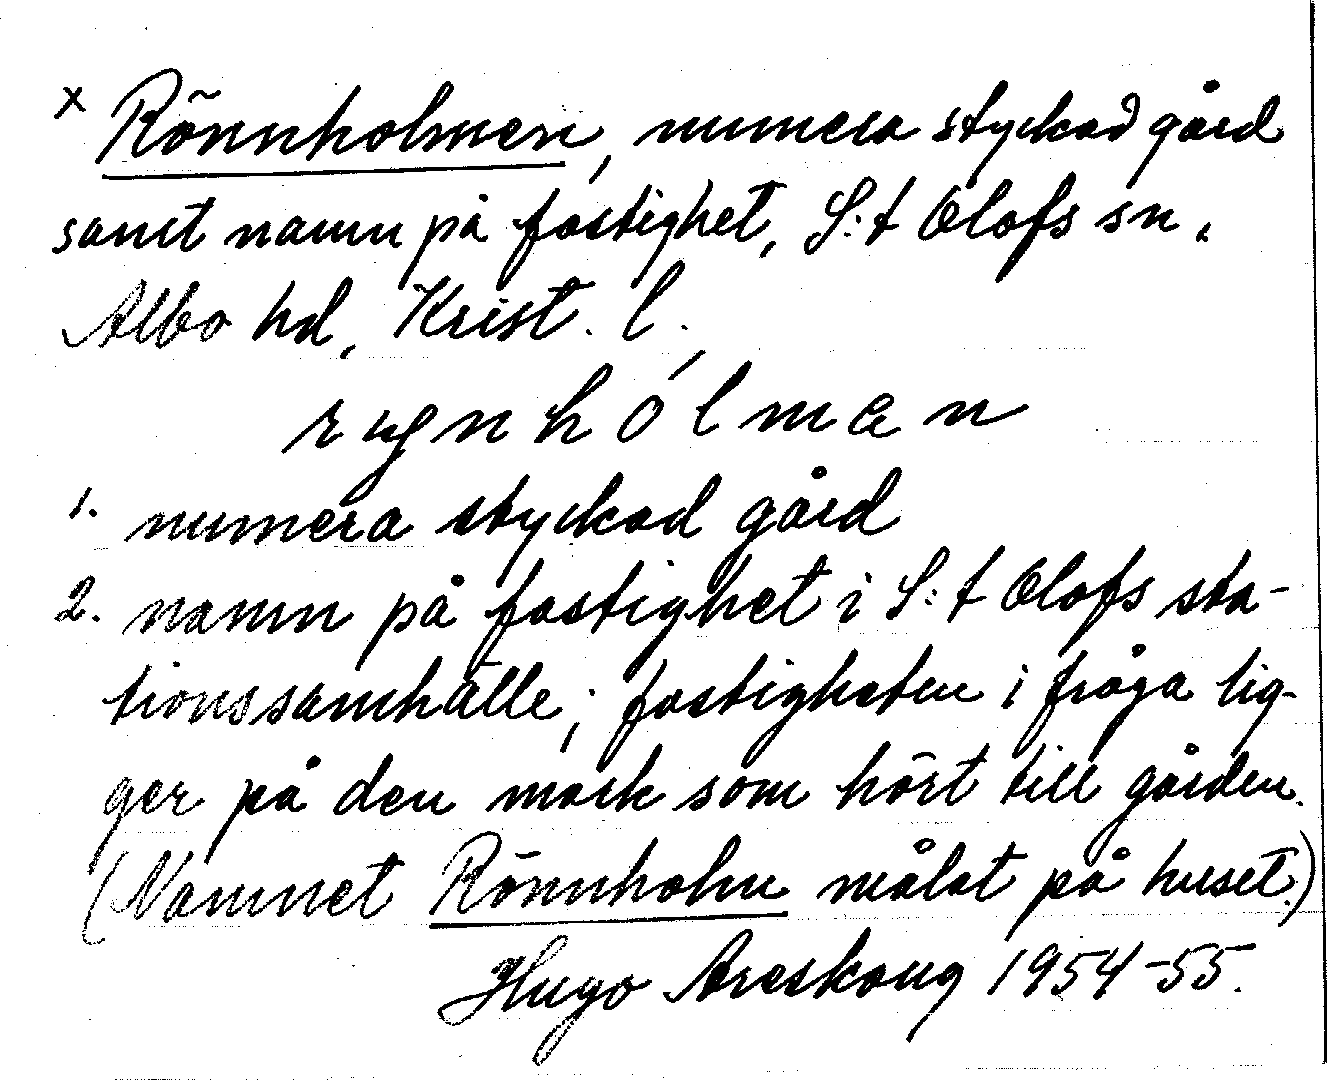 x Rönnholmen, numera styckad gård
samt namn på fastighet, S:t Olofs sn,
Albo hd, Krist. l.
1. numera styckad gård
2. namn på fastighet i S:t Olofs sta-
tionssamhälle; fastigheten i fråga lig-
ger på den mark som hört till gården.
(Namnet Rönnholm målat på huset.)
Hugo Areskoug 1954-55.